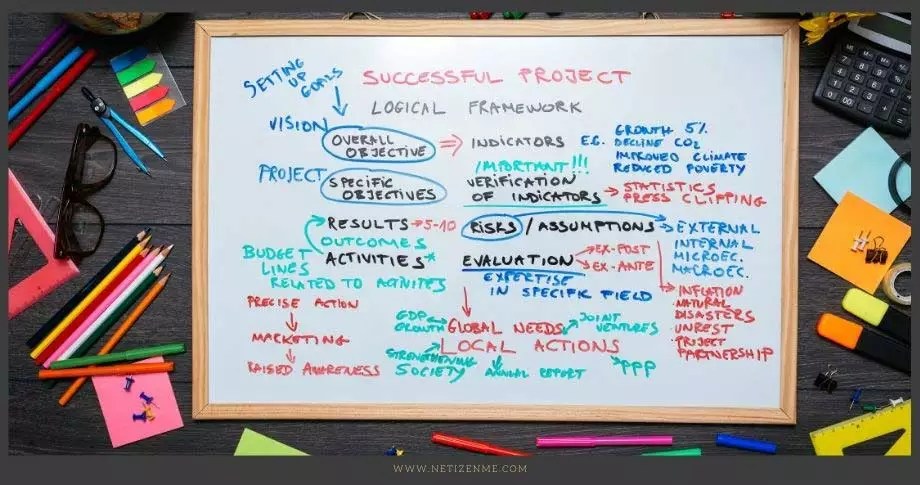 SETTING
UP
GOALS
SUCCESSFUL PROJECT
LOGICAL FRAMEWORK
VISION
OVERALL
OBJECTIVE
INDICATORS E.G.
GROWTH 5%
DECLINE CO2
IMPROVED CLIMATE
REDUCED POVERTY
PROJECT
SPECIFIC
OBJECTIVES
IMPORTANT!!!
VERIFICATION
OF INDICATORS
STATISTICS
PRESS CLIPPING
RESULTS → 5-10
OUTCOMES
ACTIVITIES*
RISKS / ASSUMPTIONS
EXTERNAL
INTERNAL
MICROEC.
MACROEC.
EVALUATION
EX-POST
EX-ANTE
EXPERTISE
IN SPECIFIC FIELD
BUDGET
LINES
RELATED TO ACTIVITES
PRECISE ACTION
MARKETING
RAISED AWARENESS
GDP
GROWTH
GLOBAL NEEDS
LOCAL ACTIONS
JOINT
VENTURES
STRENGTHENING
SOCIETY
ANNUAL REPORT
PPP
INFLATION
NATURAL
DISASTERS
UNREST
PROJECT
PARTNERSHIP
WWW.NETIZENME.COM